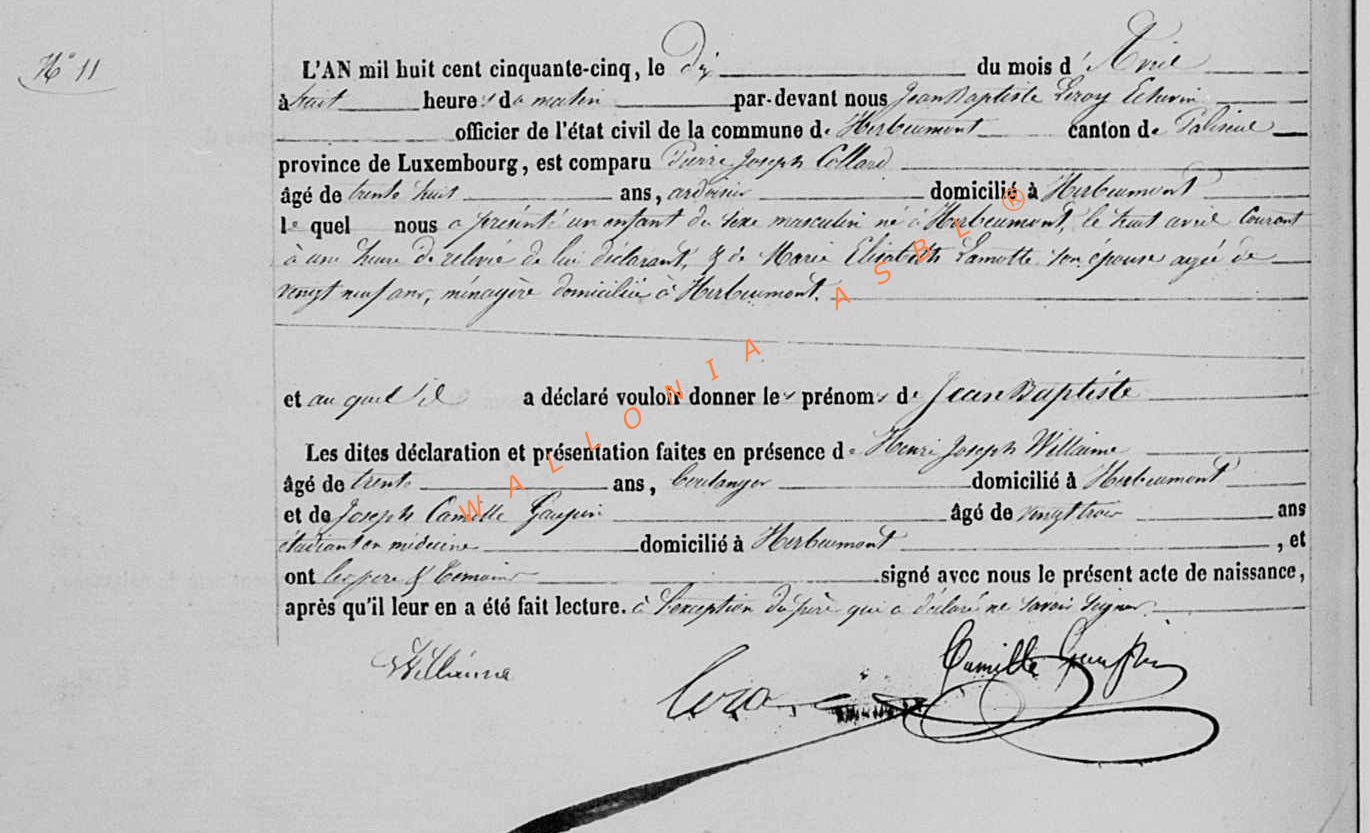 N° 11
L'AN mil huit cent cinquante-cinq, le dix du mois d'Avril
à huit heures du matin par-devant nous Jean Baptiste Leroy Echevin
officier de l'état civil de la commune de Herbeumont canton de Paliseul
province de Luxembourg, est comparu Pierre Joseph Collard
âgé de trente huit ans, ardoisier domicilié à Herbeumont
le quel nous a présenté un enfant du sexe masculin né à Herbeumont, le huit avril courant
à une heure de relevée de lui déclarant, & de Marie Elisabeth Lamotte son épouse agée de
vengt neuf ans, ménagère domiciliée à Herbeumont.
et au quel il a déclaré vouloir donner les prénoms de Jean Baptiste
Les dites déclaration et présentation faites en présence de Henri Joseph Willaime
âgé de trente ans, boulanger domicilié à Herbeumont
et de Joseph Camille Gaupin âgé de vingt trois ans
étudiant en médecine domicilié à Herbeumont, et
ont les père & témoins signé avec nous le présent acte de naissance,
après qu'il leur en a été fait lecture. à l'exception du père qui a déclaré ne savoir signer.
Willaime
Leroy
Camille Gaupin
WALLONIA ASBL ®